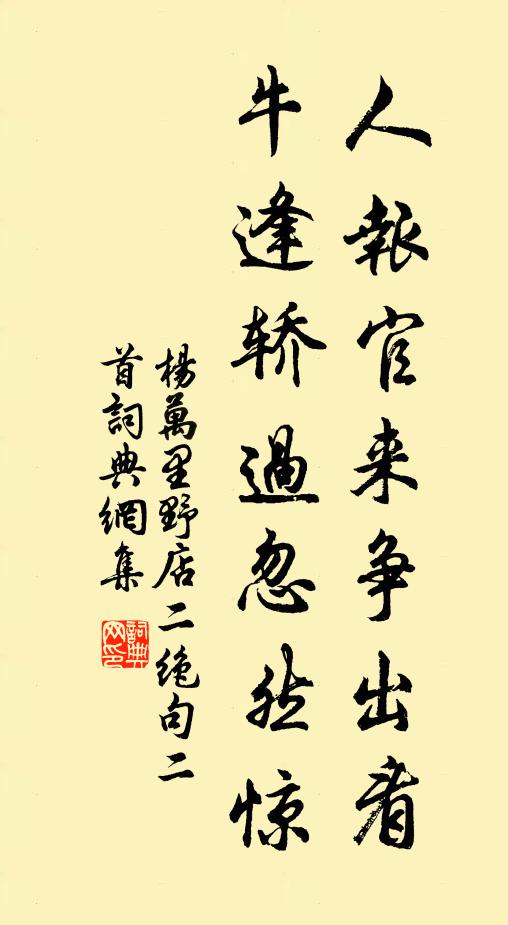 人報官来争出看
牛逢轿過忽然惊
楊萬里野店二絶句二
首詞典網集
詞典
网印